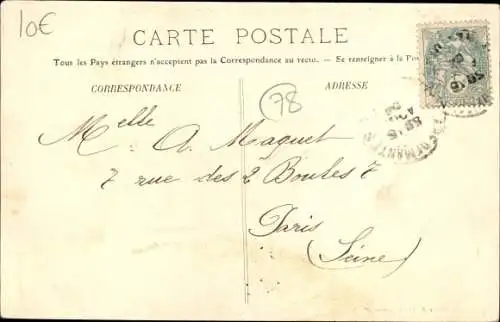 10€
CARTE POSTALE
Tous les Pays étrangers n'acceptent pas la Correspondance au recto. — Se renseigner à la Po
CORRESPONDANCE
ADRESSE
78
Melle A. Maquet
7 rue des 2 Boules 7
Paris
(Seine)